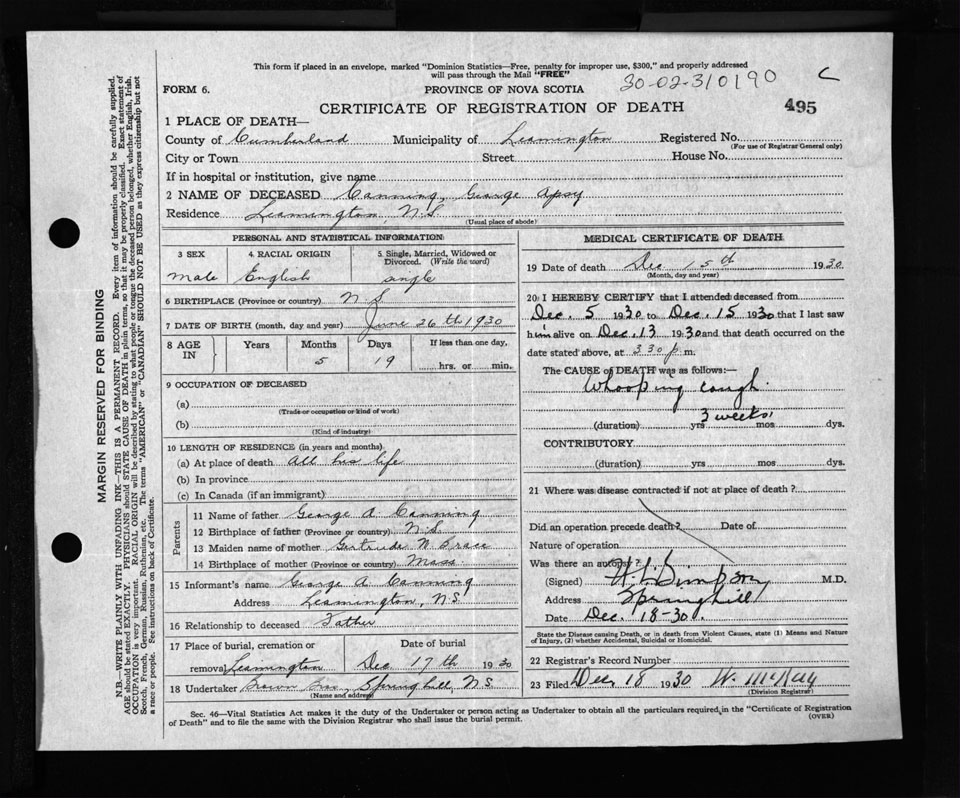 This form if placed in an envelope, marked "Dominion Statistics—Free, penalty for improper use, $300," and properly addressed
will pass through the Mail "FREE"
30-02-310190
C
FORM 6.
PROVINCE OF NOVA SCOTIA
CERTIFICATE OF REGISTRATION OF DEATH
495
1 PLACE OF DEATH—
County of Cumberland Municipality of Leamington Registered No.
(For use of Registrar General only)
City or Town Street House No.
If in hospital or institution, give name
2 NAME OF DECEASED Canning, George Apsy
Residence Leamington, N.S.
(Usual place of abode)
PERSONAL AND STATISTICAL INFORMATION
3 SEX 4. RACIAL ORIGIN 5. Single, Married, Widowed or
Divorced. (Write the word)
male English single
6 BIRTHPLACE (Province or country) N.S
7 DATE OF BIRTH (month, day and year) June 26th 1930
8 AGE IN Years Months Days If less than one day,
5 19 hrs. or min.
9 OCCUPATION OF DECEASED
(a)
(Trade or occupation or kind of work)
(b)
(Kind of industry)
10 LENGTH OF RESIDENCE (in years and months)
(a) At place of death all his life
(b) In province
(c) In Canada (if an immigrant)
Parents
11 Name of father George A Canning
12 Birthplace of father (Province or country) N.S
13 Maiden name of mother Gertrude W Brace
14 Birthplace of mother (Province or country) Mass.
15 Informant's name George A Canning
Address Leamington, NS
16 Relationship to deceased Father
17 Place of burial, cremation or Date of burial
removal Leamington Dec 17th 1930
18 Undertaker Brown Bros, Springhill, N.S
(Name and address)
MEDICAL CERTIFICATE OF DEATH
19 Date of death Dec 15th 1930
(Month, day and year)
20 I HEREBY CERTIFY that I attended deceased from
Dec. 5 1930 to Dec. 15 1930 that I last saw
him alive on Dec. 13 1930 and that death occurred on
date stated above, at 3 30 p m.
The CAUSE of DEATH was as follows:—
Whooping cough.
3 weeks
(duration) yrs mos dys.
CONTRIBUTORY
(duration) yrs mos dys.
21 Where was disease contracted if not at place of death?
Did an operation precede death? Date of
Nature of operation
Was there an autopsy?
(Signed) H. L. Simpson M.D.
Address Springhill
Date Dec. 18-30.
State the Disease causing Death, or in death from Violent Causes, state (1) Means and Nature
of Injury, (2) whether Accidental, Suicidal or Homicidal.
22 Registrar's Record Number
23 Filed Dec 18 1930 W. McKay
(Division Registrar)
Sec. 46—Vital Statistics Act makes it the duty of the Undertaker or person acting as Undertaker to obtain all the particulars required in the "Certificate of Registration
of Death" and to file the same with the Division Registrar who shall issue the burial permit.
(OVER)
MARGIN RESERVED FOR BINDING
N.B.—WRITE PLAINLY WITH UNFADING INK—THIS IS A PERMANENT RECORD. Every item of information should be carefully supplied.
AGE should be stated EXACTLY. PHYSICIANS should STATE CAUSE OF DEATH in plain terms, so that it may be properly classified. Exact statement of
OCCUPATION is very important. RACIAL ORIGIN will be described by stating to what people or tongue the deceased person belonged, whether English, Irish,
Scotch, French, German, Russian, Ruthenian, etc. The terms "AMERICAN" or "CANADIAN" SHOULD NOT BE USED as they express citizenship but not
a race or people. See instructions on back of Certificate.